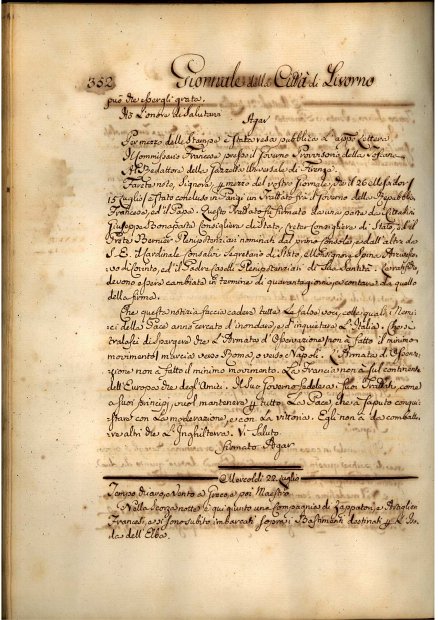 352 Giornale della Città di Livorno
può che esergli grata.
Hò L'onore di Salutarvi
Agar
Per mezzo delle Stampe è Stata resa pubblica L'app. Lettera
Il Commissario Francese presso il Governo Provvisorio della Toscana
Al Redattore della Gazzetta Universale di Firenze
Fate noto, Signore, per mezzo del vostro Giornale, che il 26 Messidor
15 Luglio è Stato concluso in Parigi un Trattato fra il Governo della Repubblica
Francese, ed il Papa. Questo Trattato fù firmato da una parte da' Cittadini
Giuseppe Bonaparte Consigliere di Stato, Cretet Consigliere di Stato, ed il
Prete Bernier Plenipotenziari nominati dal primo Console, e dall'altra da
S. E. il Cardinale Consalvi Segretario di Stato, Monsignor Spina Arcivesco-
vo di Corinto, ed il Padre Caselli Plenipotenziari di Sua Santità. Le ratifiche
devono essere cambiate in termine di quaranta giorni, da contare da quello
della firma.
Che questa notizia faccia cadere tutte Le false voci, colle quali i Nemi-
ci della Pace anno cercato d'inondare, ed inquietare L'Italia. Essi
tralasci di spargere che L'Armata d'Osservazione non à fatto il minimo
movimento marcia verso Roma, o verso Napoli. L'Armata d'Osserva-
zione non à fatto il minimo movimento. La Francia non à sul continente
dell'Europa che degli Amici. Il Suo Governo fedele a' Suoi Trattati, come
a' suoi principj, vuol mantenere per tutto La Pace, che à saputo conqui-
stare con La moderazione, e con La vittoria. Egli non à da combatte-
re altri che L'Inghilterra. Vi Saluto
Firmato Agar
Mercoldì 22. Luglio
Tempo vario, e Vento a Greco, e poi Maestro
Nella scorsa notte è qui giunta una Compagnia di Zappatori, e Artiglieri
Francesi, e si sono subito imbarcati sopra i Bastimenti destinati per L'Iso-
la dell'Elba.